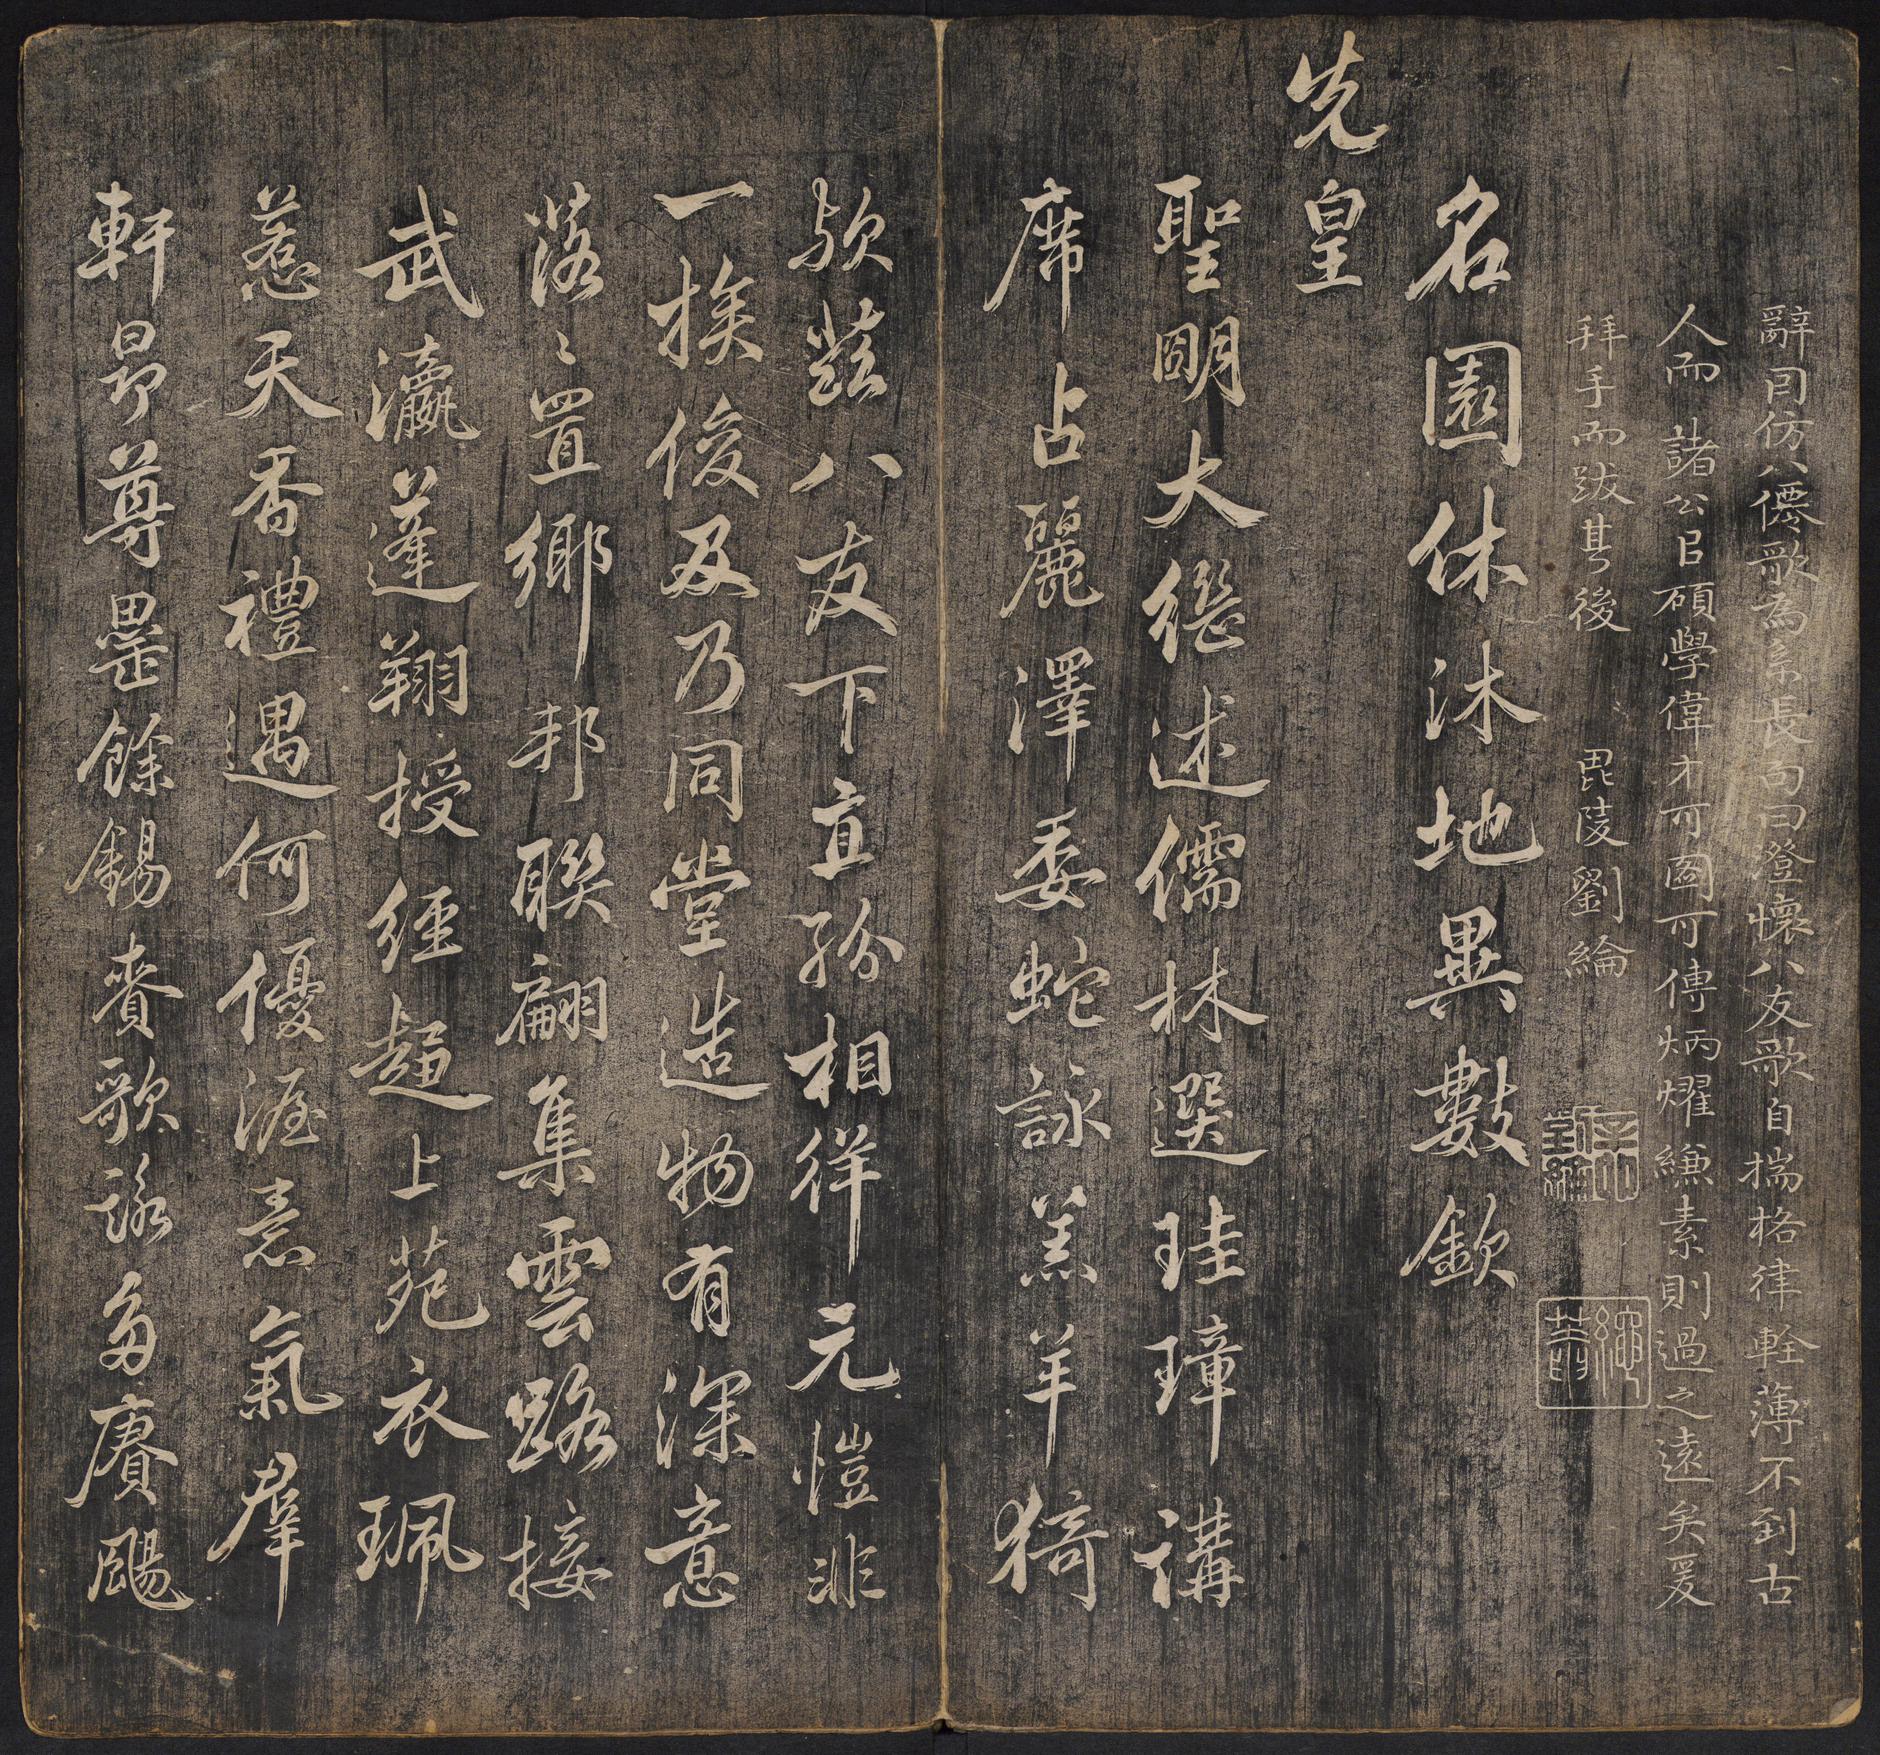 辭同仿八僊歌為系長句曰澄懷八友歌自揣格律輇薄不到古
人而諸公臣碩學偉才可圖可傳炳燿縑素則過之遠矣爰
拜手而跋其後 毘陵劉綸
名園休沐地異數欽
先皇
聖明大繼述儒林選珪璋講
席占麗澤委蛇詠羔羊猗
歟茲八友下直紛相徉元愷非
一族俊及乃同堂造物有深意
落〻置鄉邦聯翩集雲路接
武瀛蓬翔授經趨上苑衣珮
惹天香禮遇何優渥意氣羣
軒昂尊罍餘錫賚歌詠多賡颺